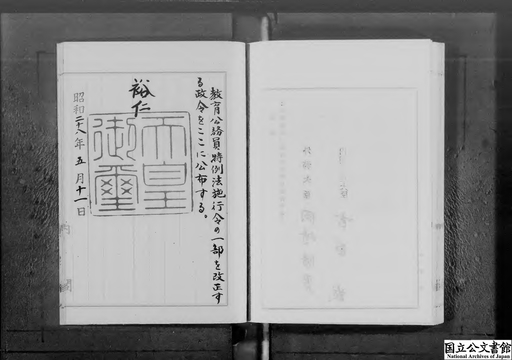 教育公務員特例法施行令の一部を改正す
る政令をここに公布する。
裕仁
天皇
御璽
昭和二十八年五月十一日
国立公文書館
National Archives of Japan